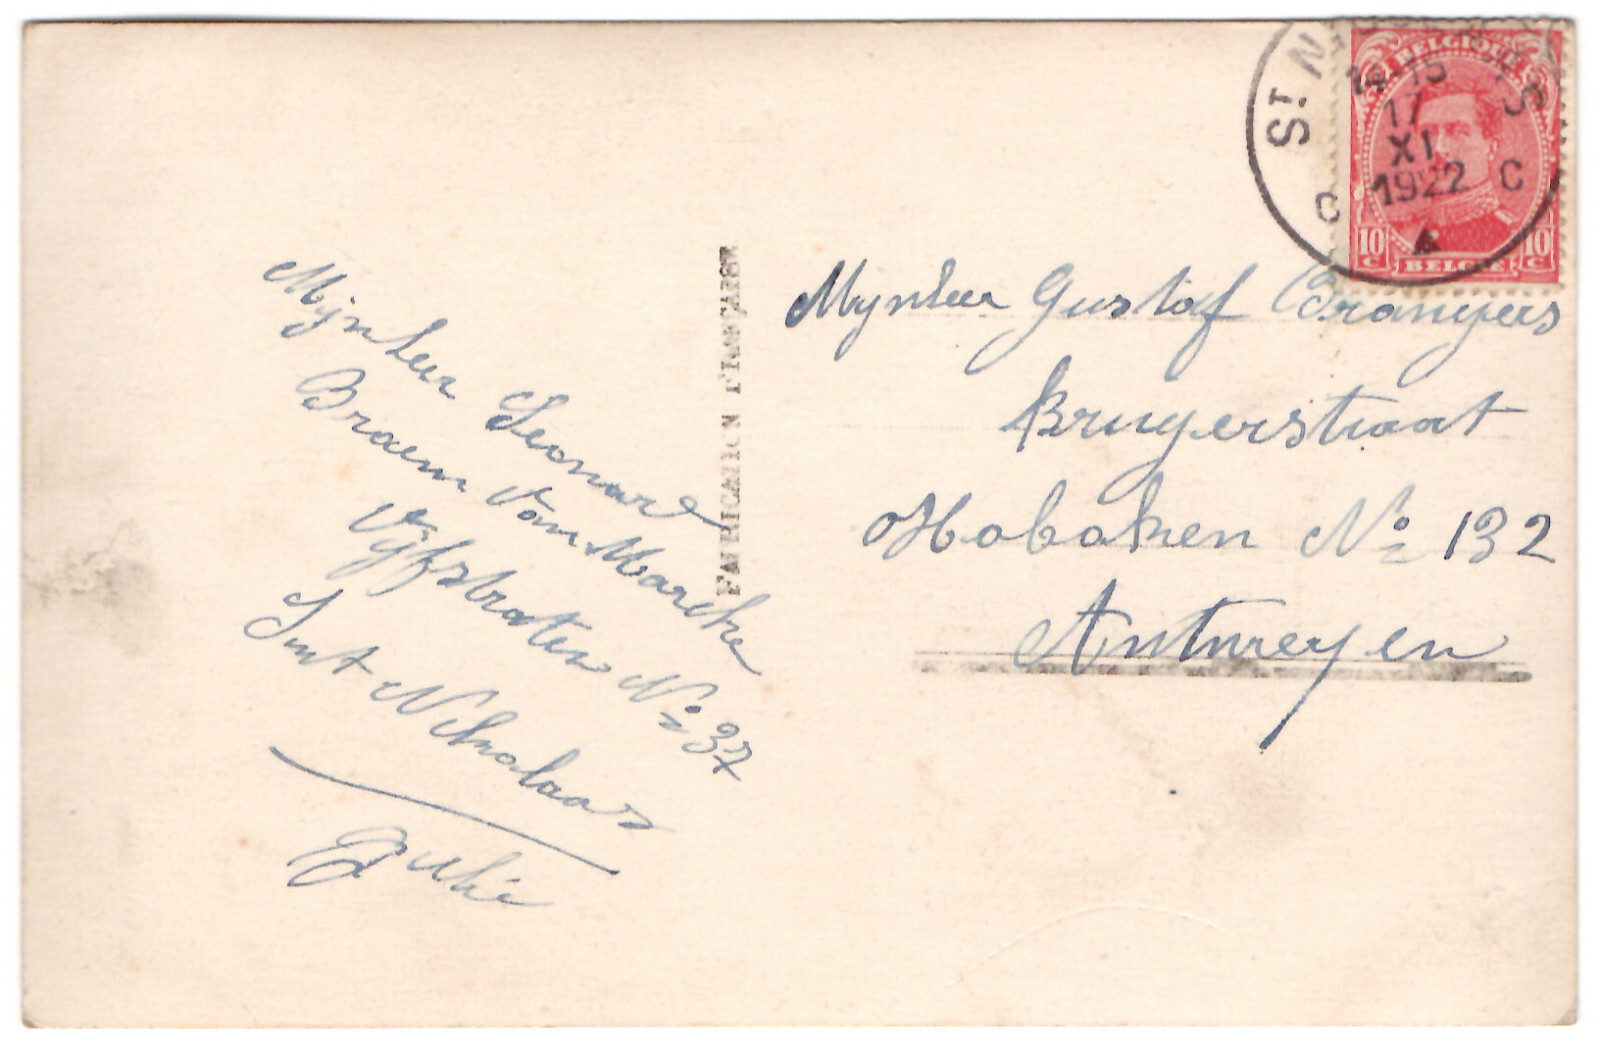 Mijnheer Leonard
Braem Van Marcke
Vijfstraten No 37
Sint Nikolaas
Julie
FABRICATION FRANÇAISE
BELGIQUE
10 C 10 C
BELGIË
ST. N S
17
XI
1922
C C
Mynheer Gustaf
Bruyerstraat
Hoboken No 132
Antwerpen